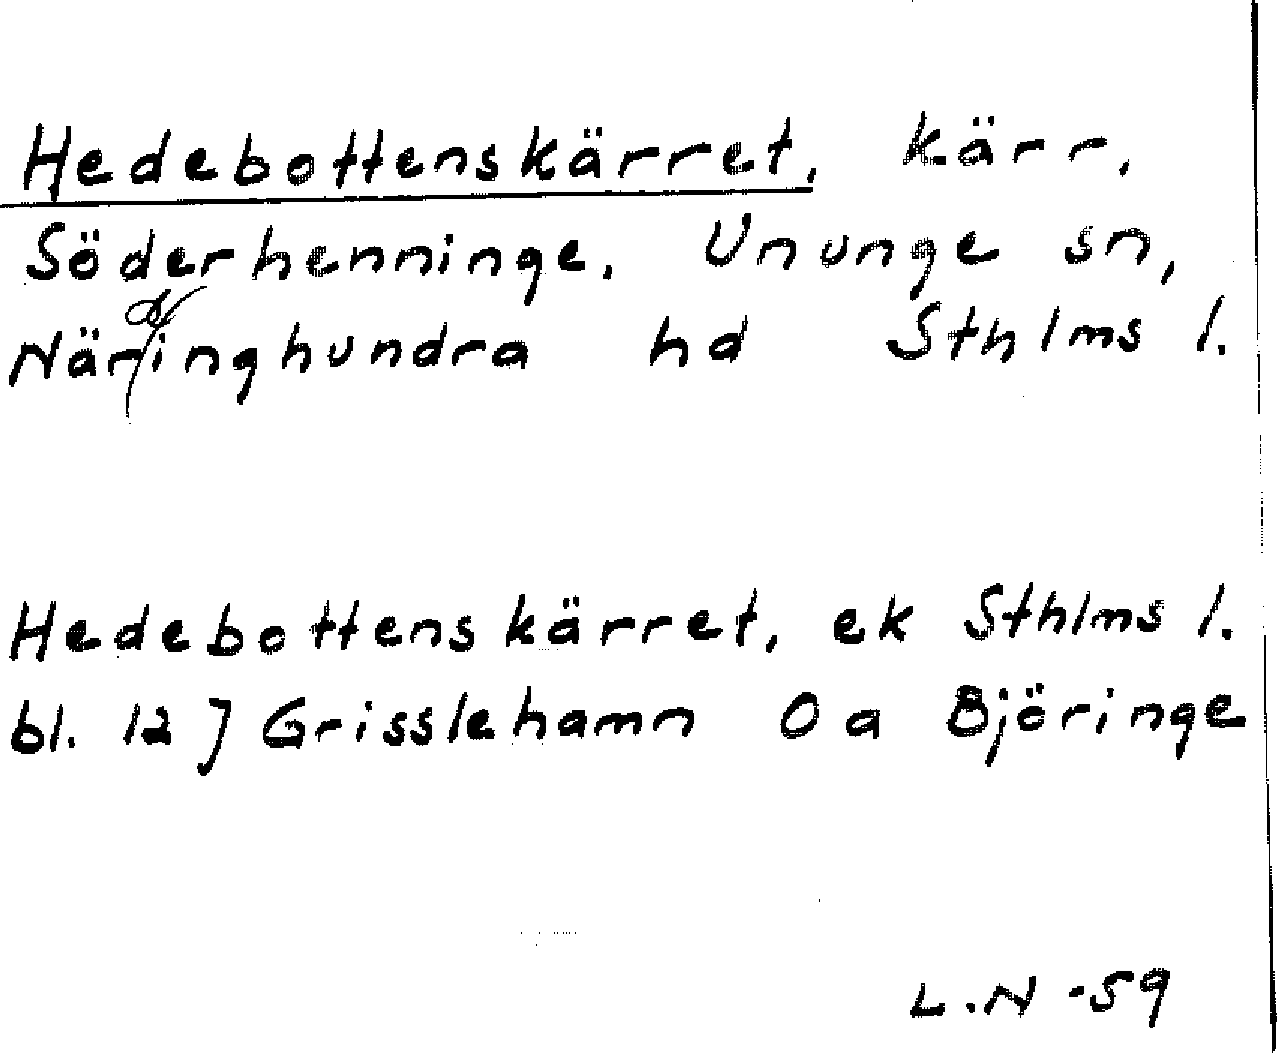 Hedebottenskärret, kärr,
Söderhenninge, Ununge sn,
Näringhundra hd Sthlms l.
Hedebottenskärret, ek Sthlms l.
bl. 12 J Grisslehamn O a Björinge
L.N -59